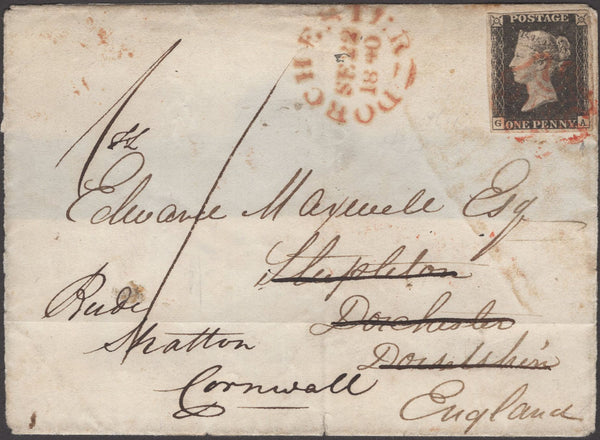 DORCHESTER
SE 22
1840
POSTAGE
G ONE PENNY A
1/
Edward Maxwell Esq
Stapleton
Dorchester
Dorsetshire
Bude
Stratton
Cornwall
England